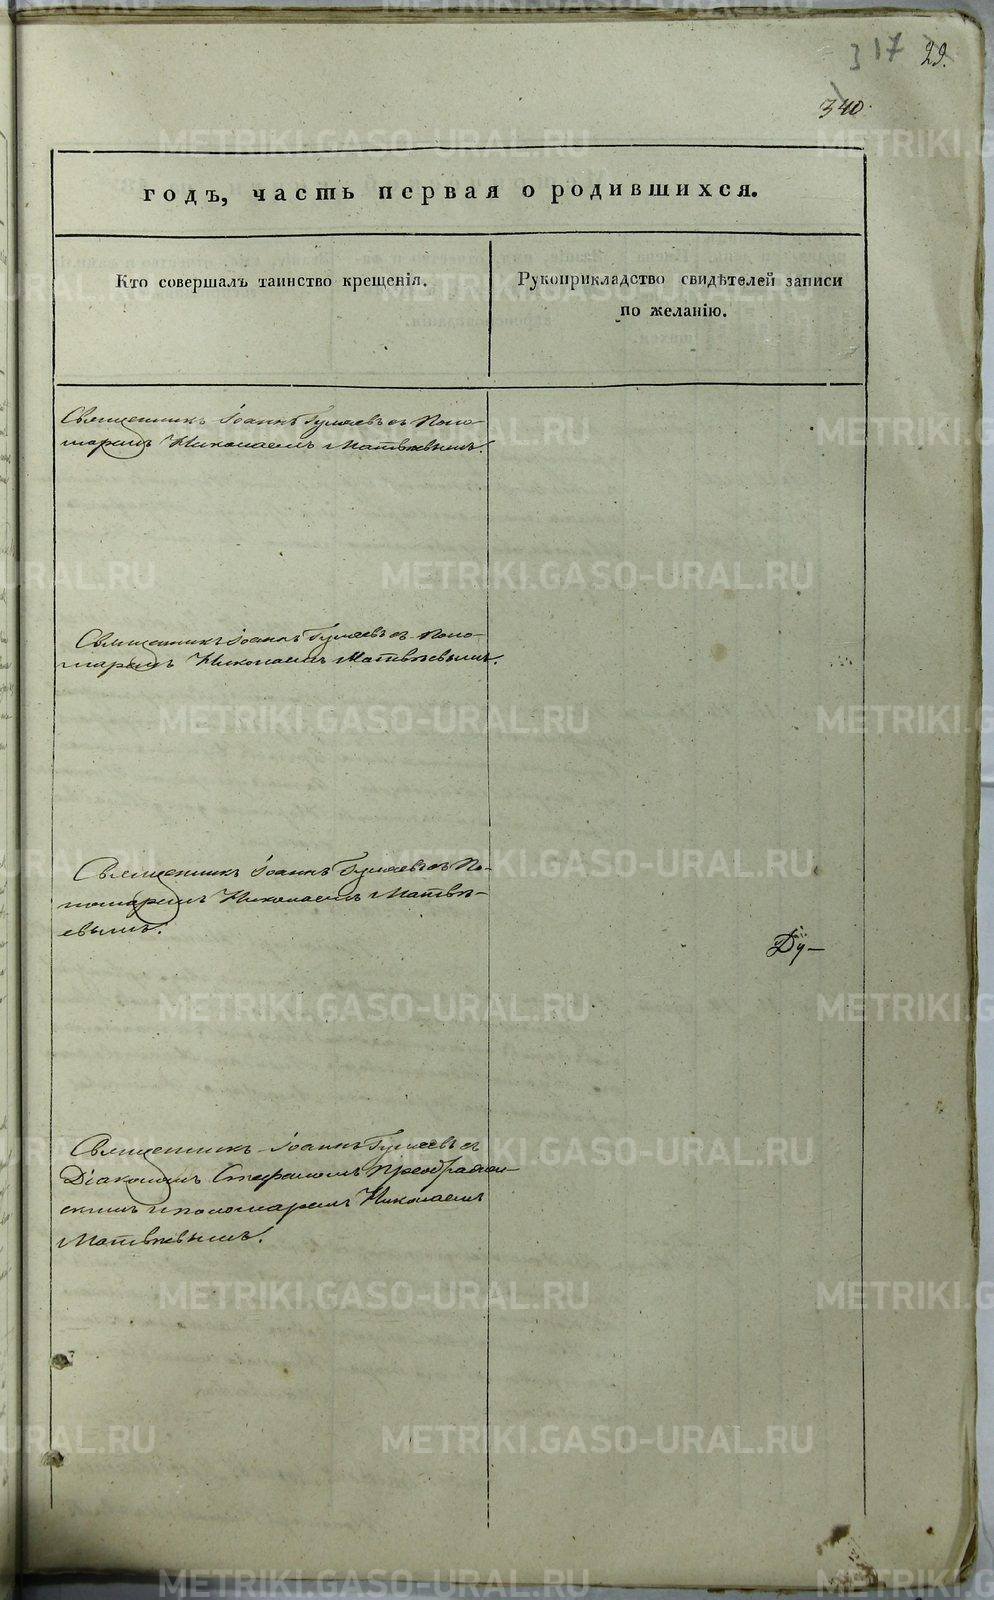 317 29.
340.
годъ, часть первая о родившихся.
Кто совершалъ таинство крещенія.
Рукоприкладство свидѣтелей записи
по желанію.
Священникъ Іоаннъ Гуляевъ съ Поно-
маремъ Николаемъ Матвѣевымъ.
Священникъ Іоаннъ Гуляевъ съ Поно-
маремъ Николаемъ Матвѣевымъ.
Священникъ Іоаннъ Гуляевъ съ По-
номаремъ Николаемъ Матвѣ-
евымъ.
Ду-
Священникъ Іоаннъ Гуляевъ съ
Діакономъ Стефаномъ Преображен-
скимъ и пономаремъ Николаемъ
Матвѣевымъ.
METRIKI.GASO-URAL.RU